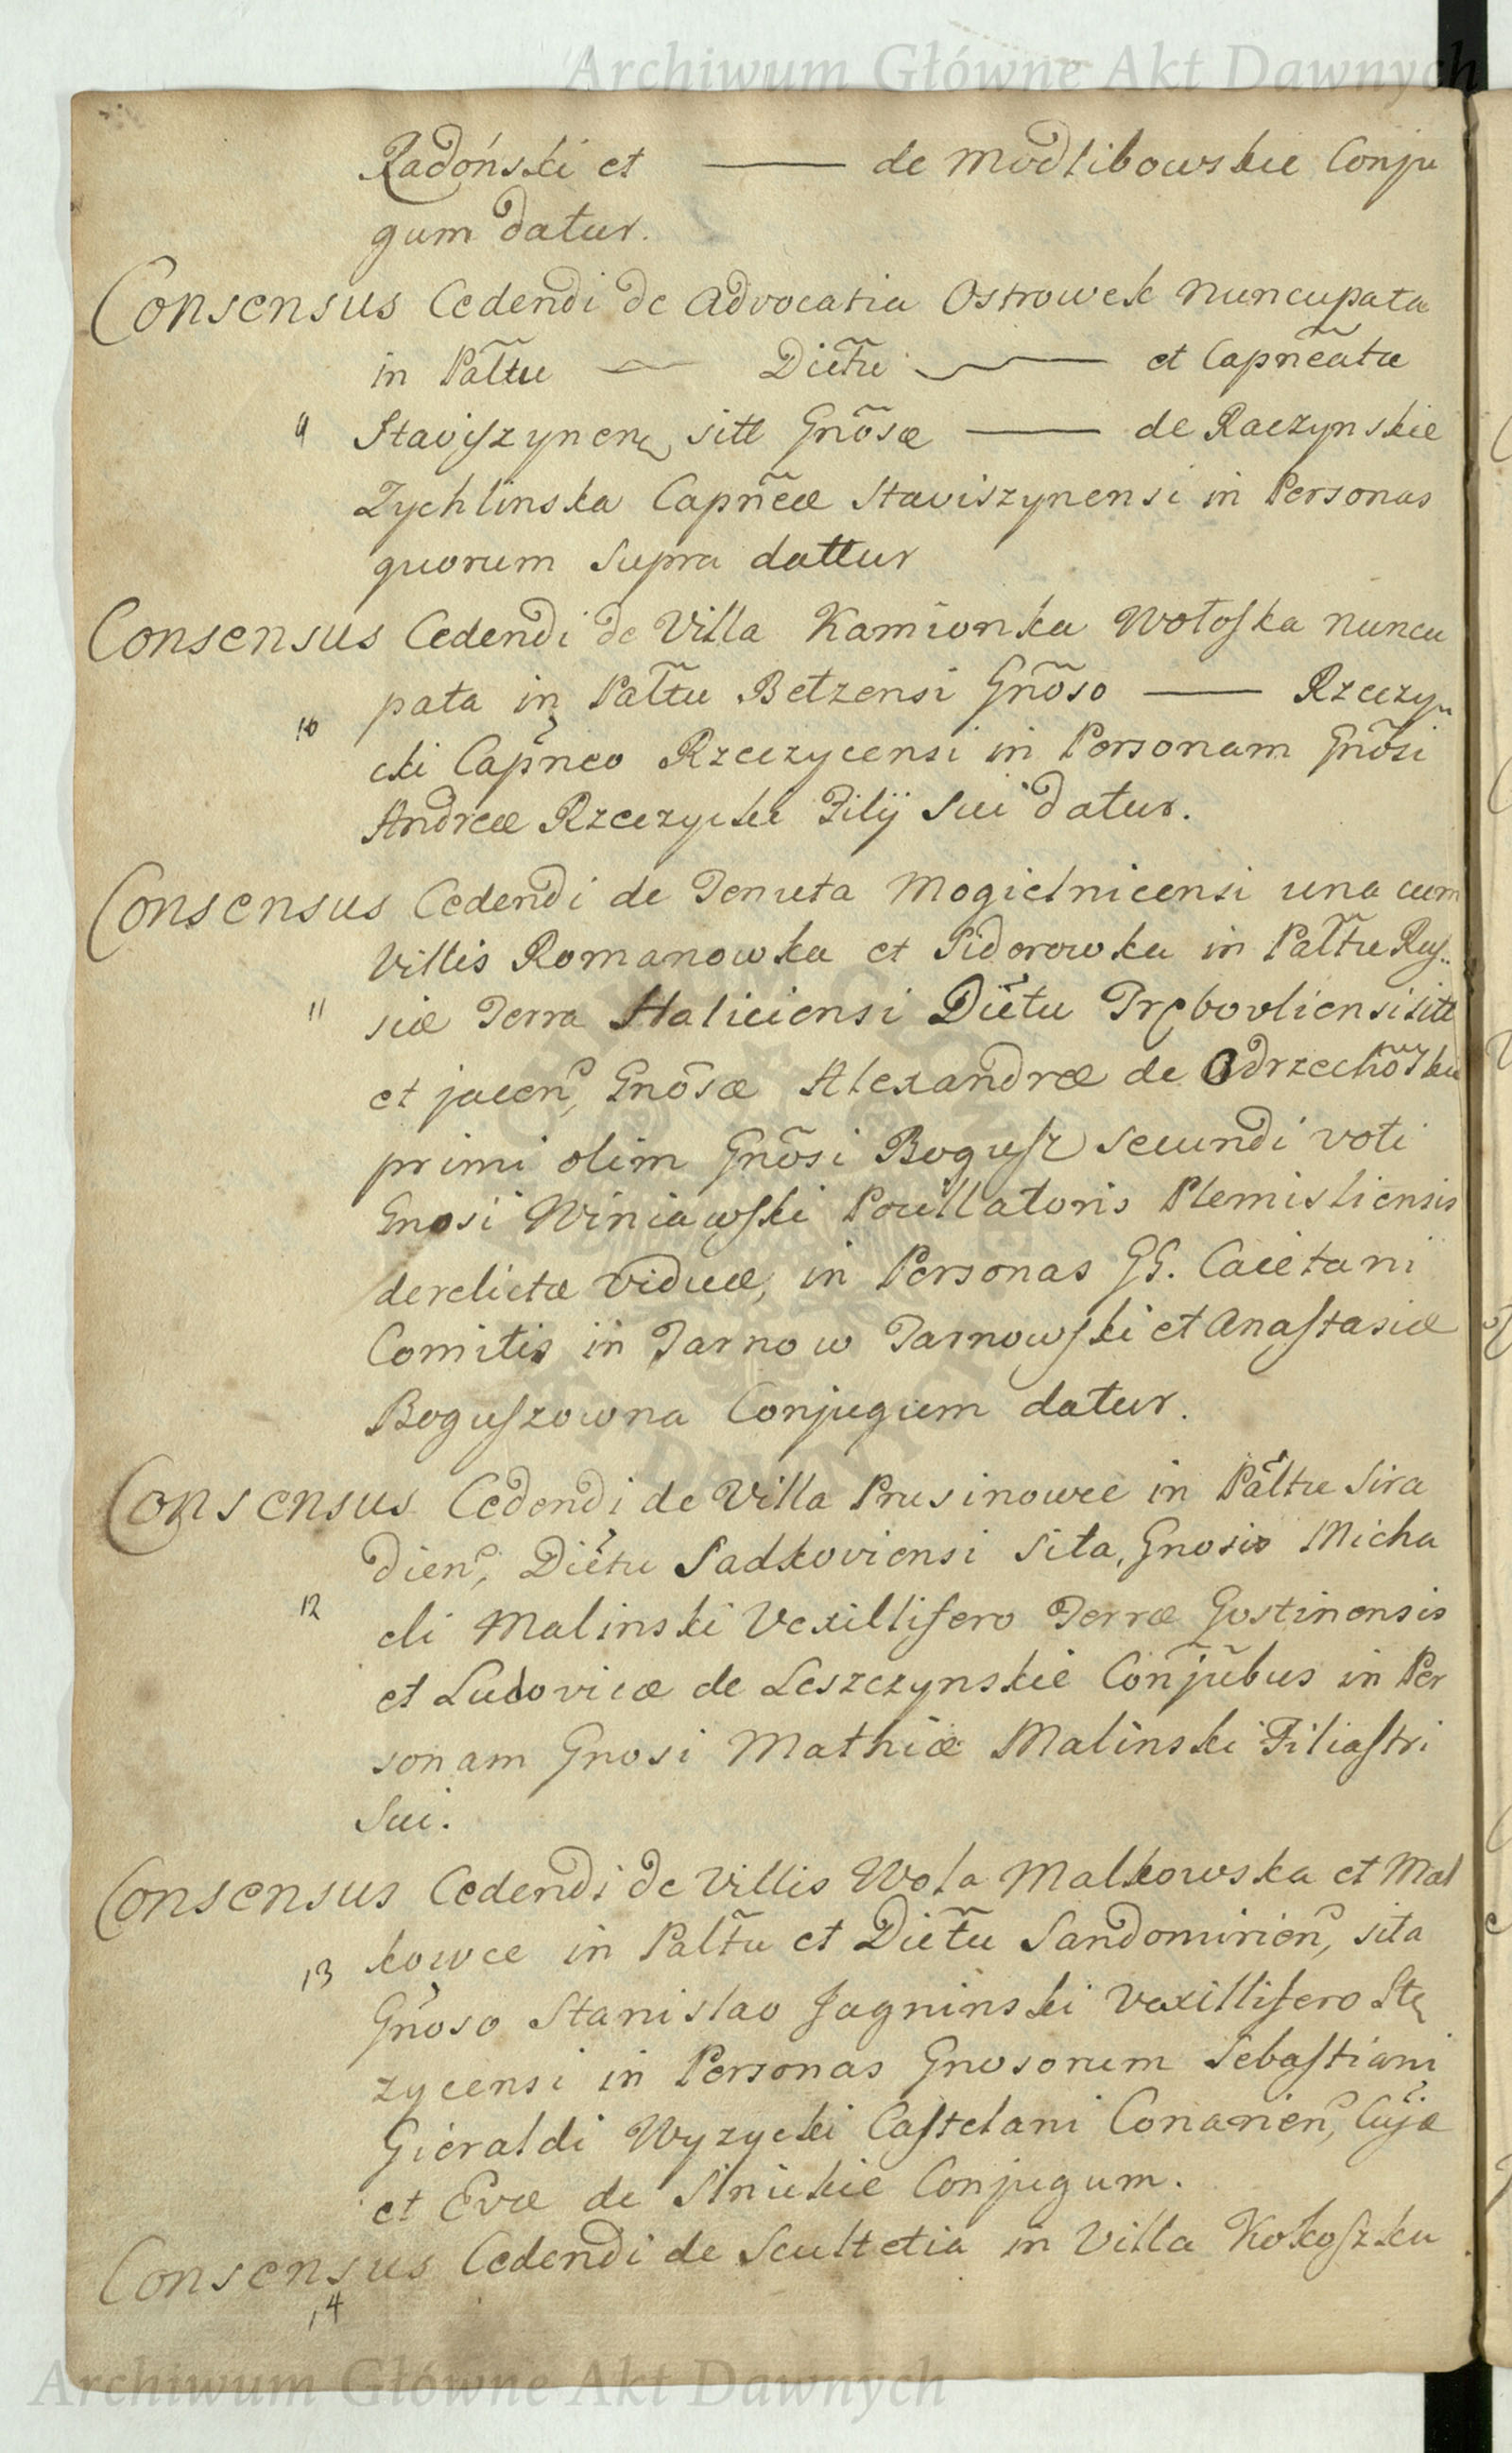 Archiwum Główne Akt Dawnych
Radoński et —— de Modlibowskie Conju
gum datur.
Consensus Cedendi de Advocatia Ostrowek nuncupata
in Pal̃tu — Diet̃u —— et Capñeatu
9 Stawiszynen, sitt Gnõsæ —— de Raczynskie
Zychlinska Capñeæ Stawiszynensi in Personas
quorum supra dattur
Consensus Cedendi de Villa Kamionka Wołoska nuncu
pata in Pal̃tu Bełzensi Gnõso —— Rzeczy
10
cki Capñeo Rzeczycensi in Personam Gnõsi
Andreæ Rzeczycki Filij sui datur.
Consensus Cedendi de Tenuta Mogielnicensi una cum
Villis Romanowka et Sidorowka in Pal̃tu Rus
11 siæ Terra Haliciensi Dietu Trębovliensi sitt
et jacen, Gnõsæ Alexandræ de Odrzechõskie
primi olim Gnõsi Bogusz secundi voti
Gnosi Winiawski Pocillatoris Plemisliensis
derelictæ Viduæ, in Personas GG. Caietani
Comitis in Tarnow Tarnowski et Anastasiæ
Boguszowna Conjugum datur.
Consensus Cedendi de Villa Prusinowce in Pal̃tu Sira
dien, Dietu Sadkoviensi Sita, Gnosis Micha
12
eli Malinski Vexillifero Terræ Gostinensis
et Ludovicæ de Leszczynskie Coñjũbus in Per
sonam Gnosi Mathiæ Malinski Filiastri
Sui.
Consensus Cedendi de Villis Wola Malkowska et Mal
13 kowce in Pal̃tu et Diet̃u Sandomirien, sita
Gñoso Stanislao Jagninski Vexillifero Stę
zycensi in Personas Gnosorum Sebastiani
Gieraldi Wyzycki Castelani Conarien, Cujæ
et Evæ de Slnickie Conjugum.
Consensus Cedendi de Scultetia in Villa Kokoszku
14
Archiwum Główne Akt Dawnych